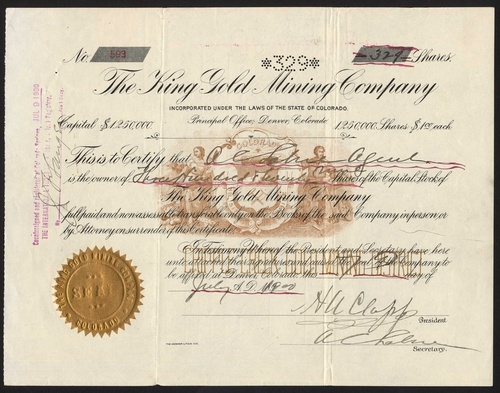 No. 593
*329*
329 Shares.
The King Gold Mining Company
INCORPORATED UNDER THE LAWS OF THE STATE OF COLORADO.
Capital $1,250,000. Principal Office, Denver, Colorado 1,250,000 Shares $1.00 each
COLORADO
This is to Certify that A C Agent
is the owner of Three Hundred & Twenty nine Shares of the Capital Stock of
The King Gold Mining Company
full paid and non-assessable transferable only on the Books of the said Company in person or
by Attorney on surrender of this Certificate.
In Testimony Whereof the President and Secretary have here
unto affixed their signatures and caused the seal of the Company to
be affixed at Denver Colorado the day of
July A.D. 1900
H A Clapp
President
A C
Secretary.
SEAL
COLORADO
Countersigned and Registered at Denver JUL 9 1900
THE INTERNATIONAL